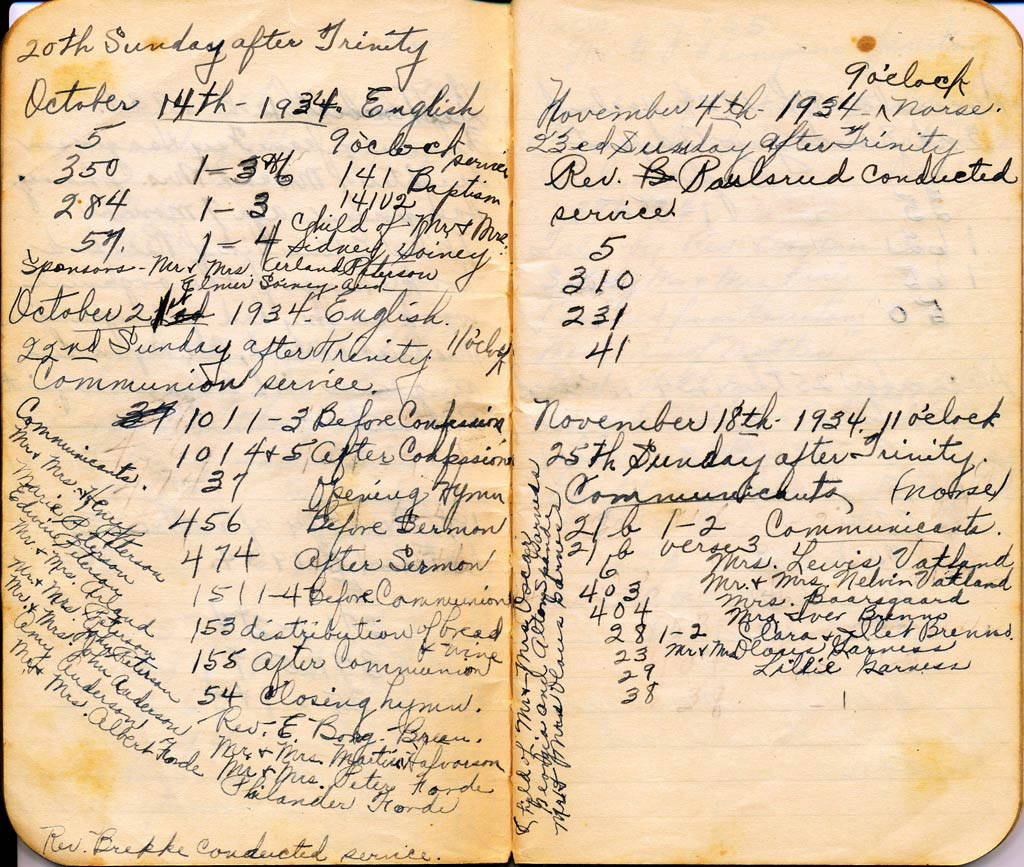 20th Sunday after Trinity
October 14th - 1934. English
5 9 o'clock service
350 1-3 141 Baptism
284 1-3 14102
57. 1-4 Child of Mr & Mrs. Sidney Soiney
Sponsors - Mr & Mrs. Arland Peterson
Elmer Soiney and
October 21st 1934. English.
22nd Sunday after Trinity 11 o'clock
Communion service.
101 1-3 Before Confession
101 4+5 After Confession
37 Opening Hymn
456 Before Sermon
474 After Sermon
151 1-4 Before Communion
153 distribution of bread & wine
155 After Communion
54 Closing hymn.
Rev. E. Borg-Breen.
Mr. & Mrs. Martin Halvorson
Mr & Mrs. Peter Forde
Philander Forde
Communicants.
Mr & Mrs. Henry Peterson
Marie Peterson
Edwin Peterson
Mr & Mrs. Arland Peterson
Mr & Mrs. John Peterson
Mr. & Mrs. John Anderson
Anderson
Mr & Mrs. Albert Forde
Rev. Brekke conducted service.
9 o'clock
November 4th - 1934 ^ Norse.
23ed Sunday after Trinity
Rev. Paulsrud conducted
service.
5
310
231
41
November 18th - 1934. 11 o'clock
25th Sunday after Trinity.
Communicants (Norse)
21 b 1-2 Communicants.
21 b verse 3 Mrs. Lewis Vatland
6 Mr. & Mrs Nelvin Vatland
403 Mrs. Baarsgaard
404 Mrs Iver Brenno
28 1-2 Clara & Illet Brenno.
23 Mr & Mrs Olaus Garness
29 Lillie Garness
38
Child of Mr & Mrs Oscar Garness
Georgia and Alton Sponsors
Mr & Mrs Olaus Garness